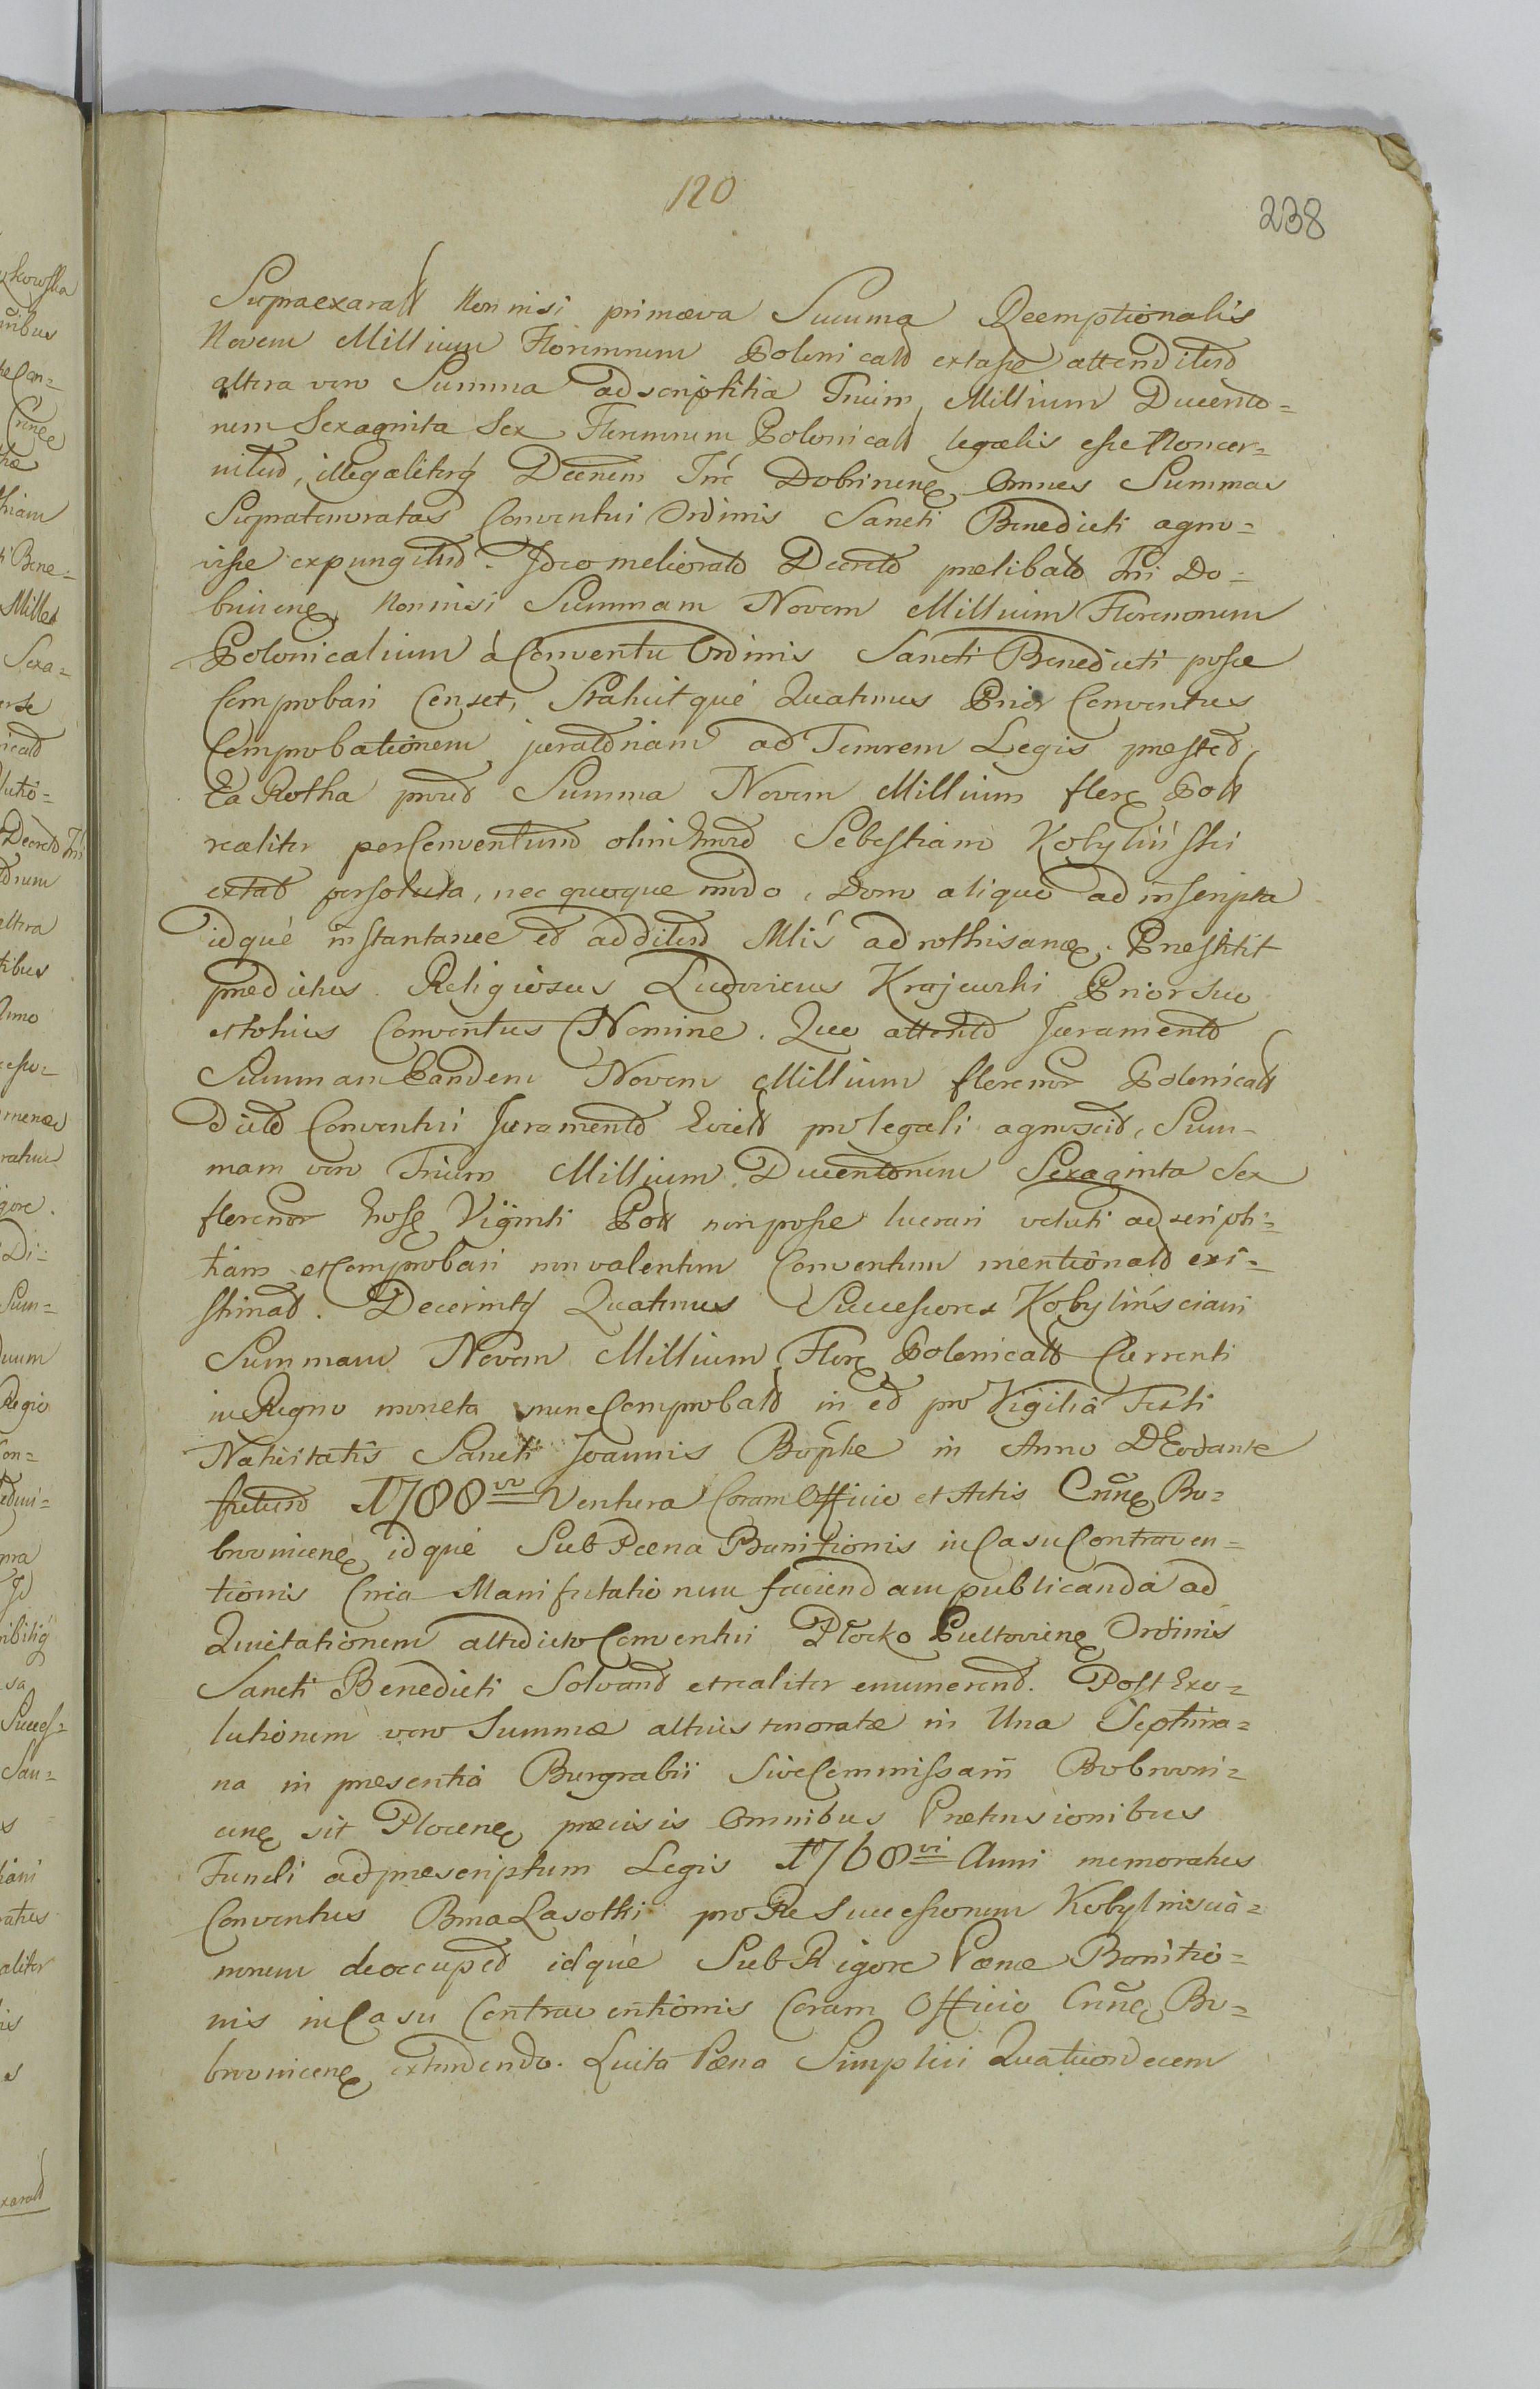 120
238
Supraexarat Non nisi primæva Summa Reemptionalis
Novem Millium Florenorum Polonicald extasse attenditur
altera vero Summa adscriptitia Trium Millium Ducento=
rum Sexaginta Sex Florenorum Polonicall legalis esse Non cer=
nitur, illegaliterq Decretum Dobrinen Omnes Summas
Supratenoratas Conventui Ordinis Sancti Benedicti agno=
visse expungitur. Ideo meliorato Decreto prælibato Do=
brinen Non nisi Summam Novem Millium Florenorum
Polonicalium à Conventu Ordinis Sancti Benedicti posse
Comprobari Censet, Statuitquè Quatenus Prior Conventus
Comprobationem juratoriam ad Tenorem Legis prestet,
Ea Rotha prout Summa Novem Millium flor Poll
realiter per Conventum olim Sebestiano Kobyliński
extat persoluta, nec quoque modo, Dono aliquo ad inscripta
idquè instantanee et additur ad rothisanem. Prestitit
predictus Religiosus Ludovicus Krajewski Prior suo
et totius Conventus Nomine. Quo attento Juramento
Summam Eandem Novem Millium florenor Polonicall
Dicto Conventui Juramento pro legali agnoscit, Sum=
mam vero Trium Millium Ducentorum Sexaginta Sex
florenor Viginti Poll non posse lucrari veluti adscripti=
tiam et Comprobari non valentem Conventum mentionatd exi=
stimat. Decernitq Quatenus Successores Kobylińsciani
Summam Novem Millium Flor Polonicall Currenti
in Regno moneta nunc Comprobatd in et pro Vigilia Festi
Nativitatis Sancti Joannis Bapthæ in Anno DEodante
futuro 1788vo Ventura Coram Officio et Actis Bo=
brovnicen, idquè Sub Pœna Banitionis in Casu Contraven=
tionis Circa Manifestationem faciendam publicanda ad
Quietationem altedicto Conventui Płocko Pultovien Ordinis
Sancti Benedicti Solvant et realiter enumerent. Post Exo=
lutionem vero Summæ altius tenoratæ in Una Septima=
na in præsentia Burgrabii Sive Commissarii Bobrovni=
cen sit Plocen præcisis Omnibus Prætensionibus
Fundi ad præscriptum Legis 1768vi Anni memoratus
Conventus Bona Lasotki pro Re Successorum Kobylinscia=
norum deoccupet idquè Sub Rigore Pœnæ Banitio=
nis in Casu Contraventionis Coram Officio Bo=
brovnicen extendendo. Luita Pœna Simplici Quatuordecem